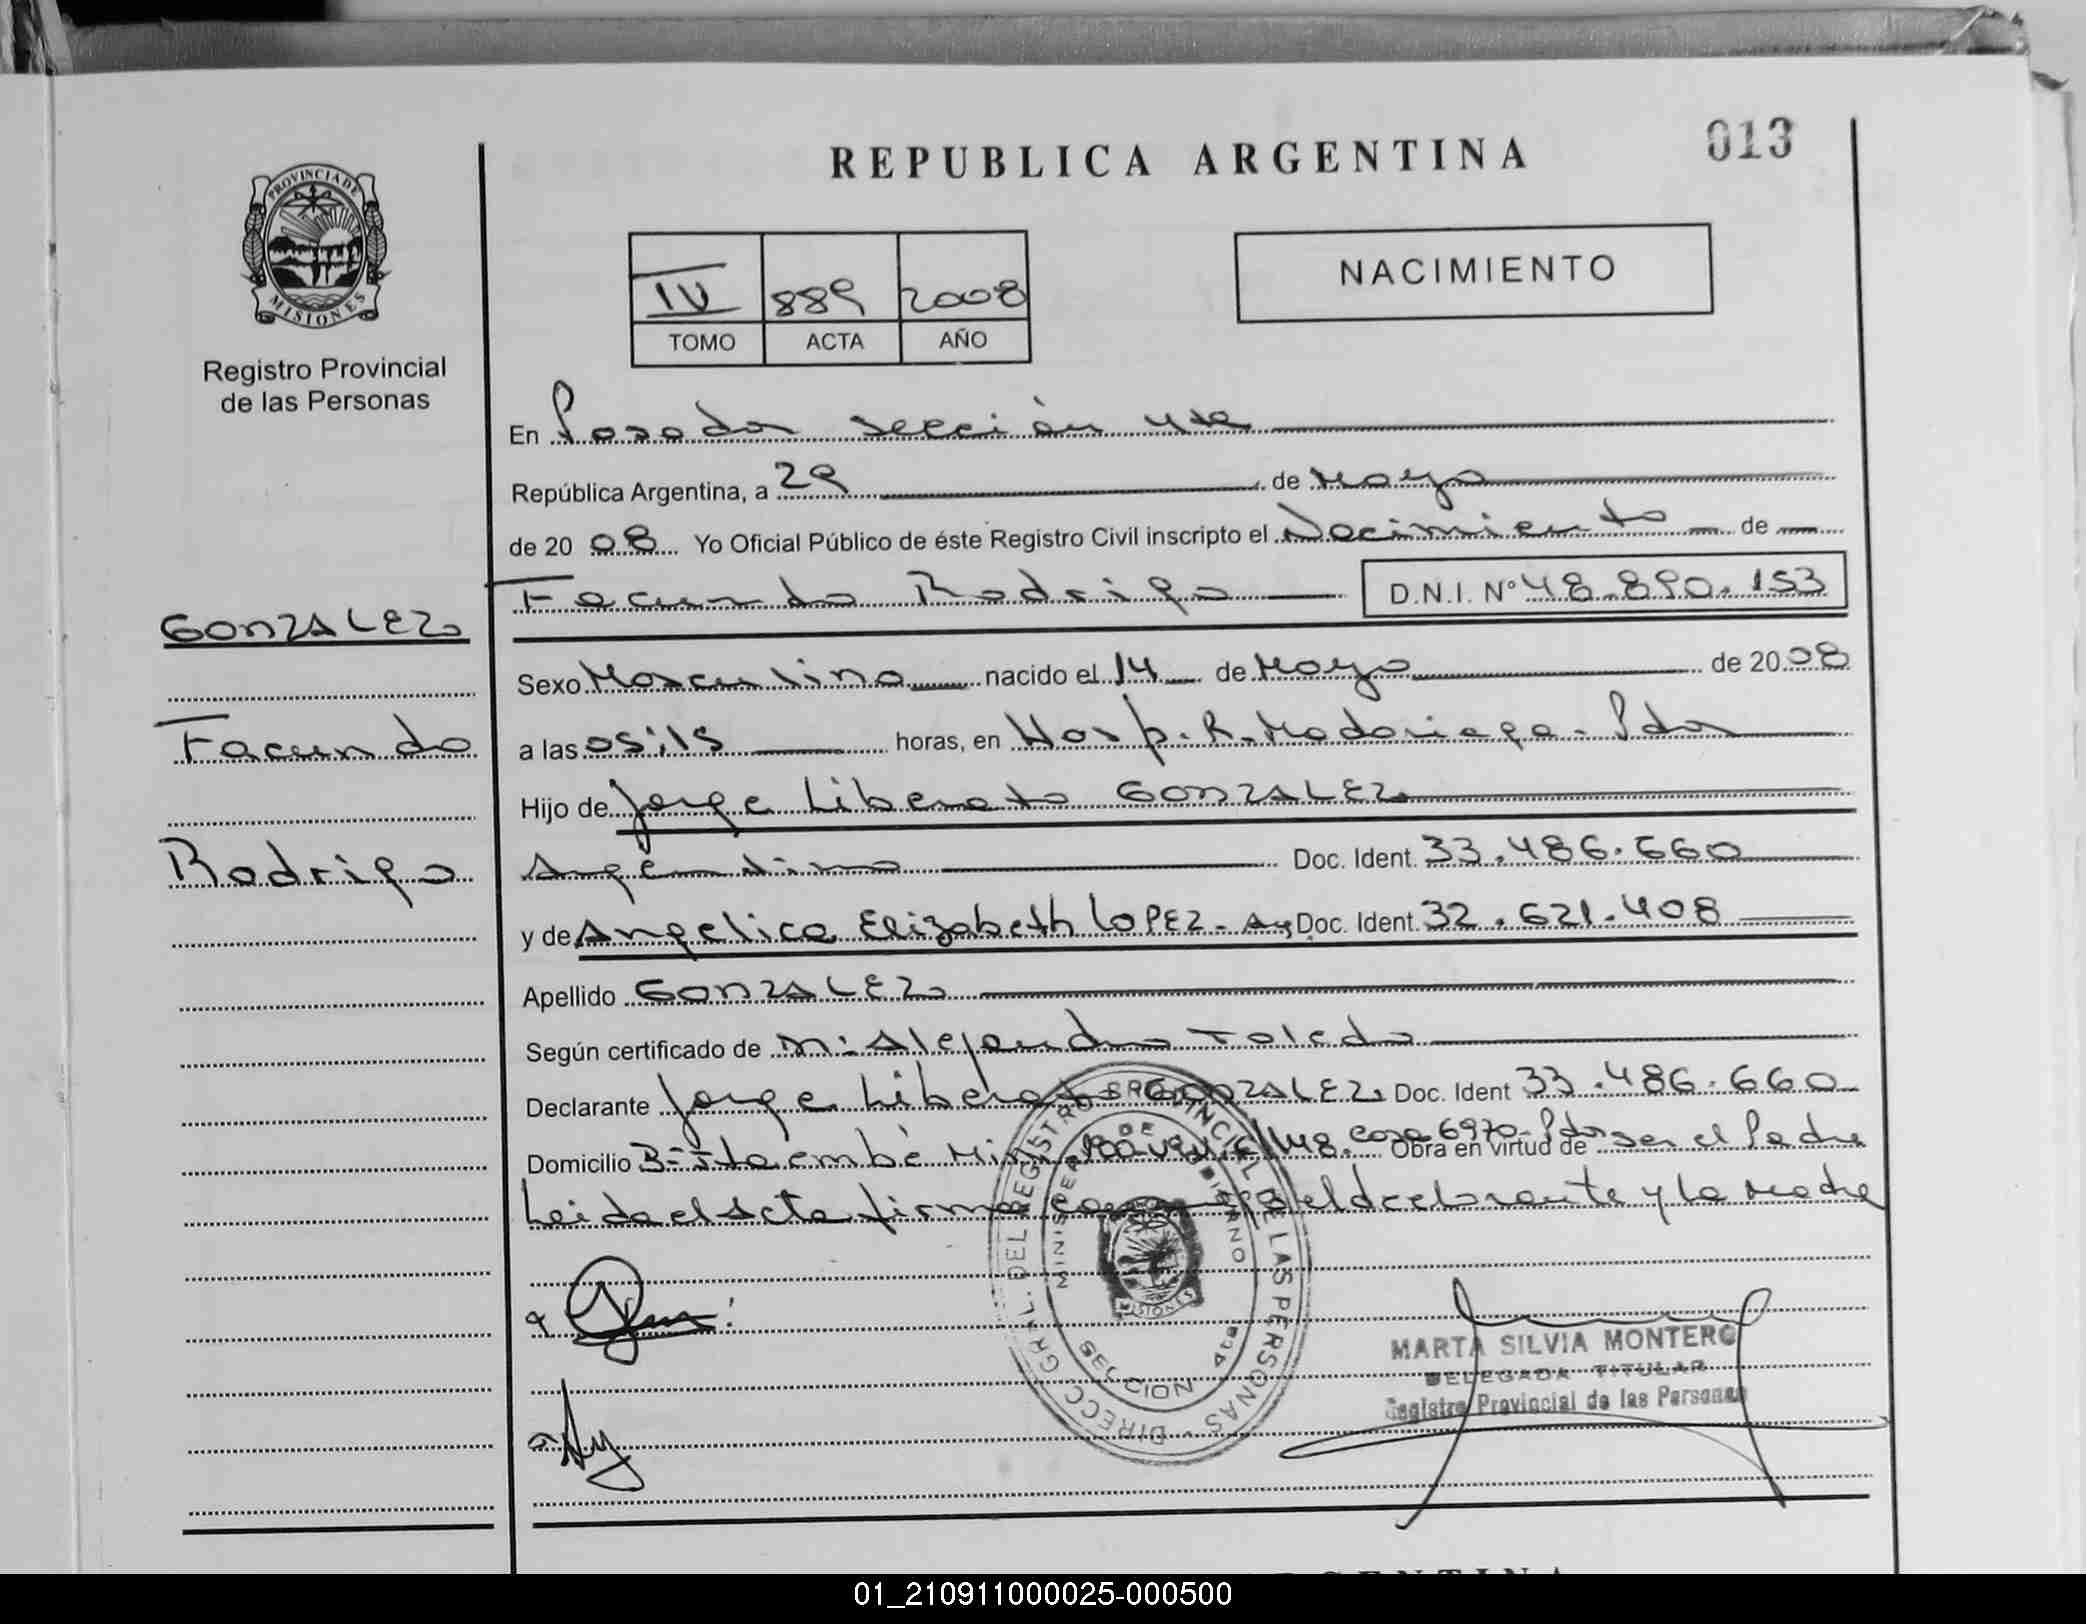 REPUBLICA ARGENTINA
013
PROVINCIA DE
MISIONES
Registro Provincial
de las Personas
IV 889 2008
TOMO ACTA AÑO
NACIMIENTO
En Posadas sección 4ta
República Argentina, a 29 de Mayo
de 2008 Yo Oficial Público de éste Registro Civil inscripto el Nacimiento de
Facundo Rodrigo D.N.I. Nº 48.890.153
GONZALEZ
Facundo
Rodrigo
Sexo Masculino nacido el 14 de Mayo de 2008
a las 05:15 horas, en Hosp. R. Madariaga - Pdas
Hijo de Jorge Liberato GONZALEZ
Argentino Doc. Ident. 33.486.660
y de Angelica Elizabeth LOPEZ - Doc. Ident. 32.621.408
Apellido GONZALEZ
Según certificado de M: Alejandro Toledo
Declarante Jorge Liberato GONZALEZ Doc. Ident 33.486.660
Domicilio Bº Itaembé Mini 148. casa 6970 - Pdas Obra en virtud de ser el Padre
Leida el Acta firma conmigo el declarante y la Madre
DIRECC. GRAL. DEL REGISTRO PROVINCIAL DE LAS PERSONAS
MINISTERIO DE GOBIERNO
MISIONES
SECCION 4ta
MARTA SILVIA MONTERO
DELEGADA TITULAR
Registro Provincial de las Personas
01_210911000025-000500